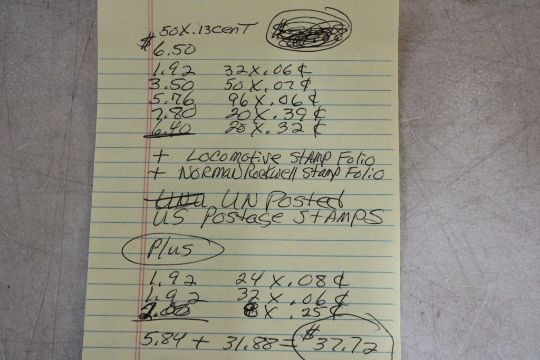 50X.13cenT
$6.50
1.92 32X.06¢
3.50 50X.07¢
5.76 96X.06¢
7.80 20X.39¢
6.40 20X.32¢
+ LOCOMOTIVE STAMP FOLIO
+ NORMAN Rockwell Stamp Folio
UN Posted
US Postage STAMPS
Plus
1.92 24X.08¢
1.92 32X.06¢
2.00 8X.25¢
5.84 + 31.88 = $37.72